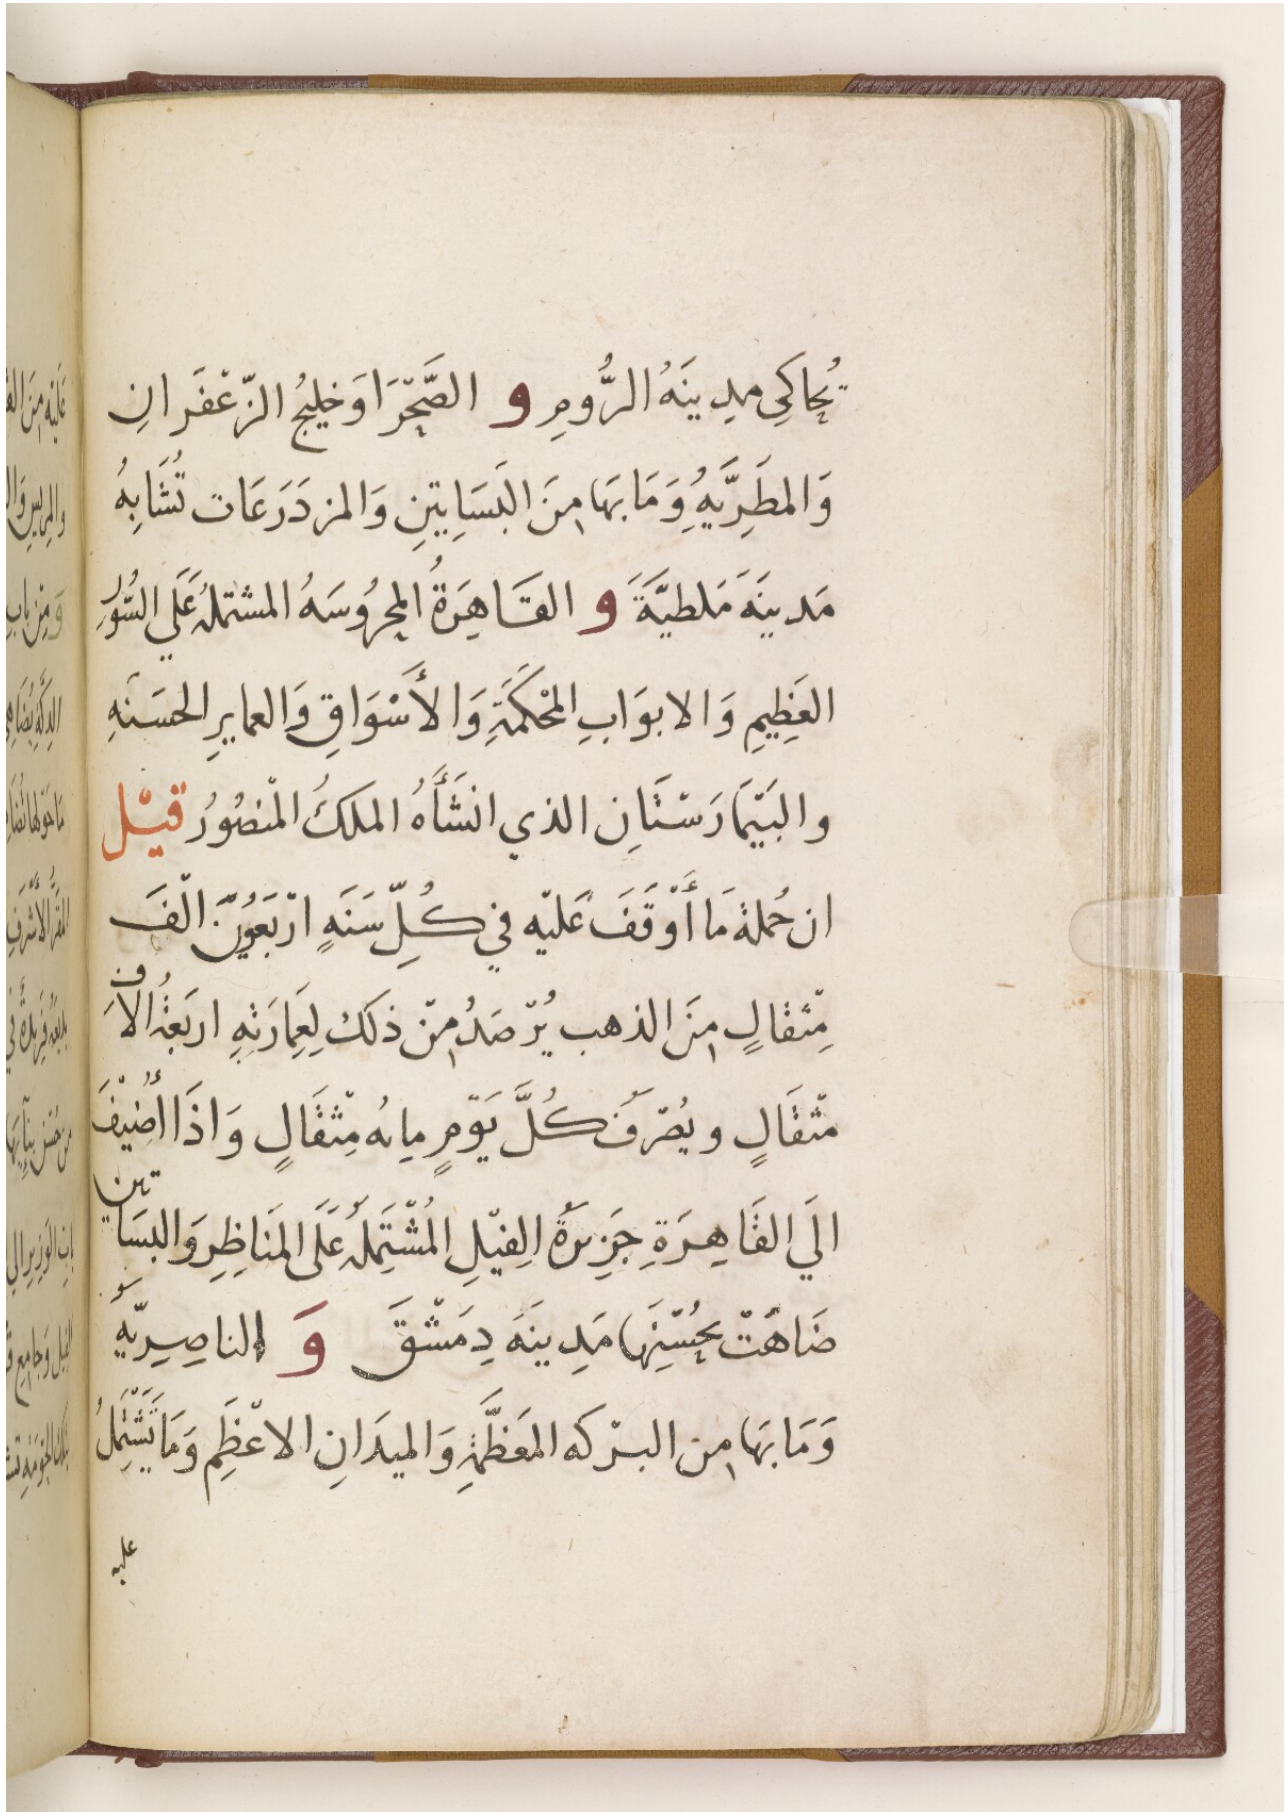 يُحاكِي مدِينَهُ الرُّومِ و الصَّحْرَا وَخليجُ الزّعْفَرانِ
وَالمطَرِيَّهِ وَمَا بهَا مِنَ البَسَاِتينِ وَالمزدَرَعَات تُشَابِهُ
مَدينَهَ مَلطيَّةَ و القَاهِرَةُ المحرُوسَهُ المشتملهُ عَلَي السُّورِ
العَظِيمِ وَالابوَابِ المحْكَمَةِ وَالأَسْوَاقِ وَالعمايرِ الحسَنَهِ
والبَيْمَارَسْتَانِ الذي انشَأَهُ الملكُ المْنصُورُ قيْل
ان جُملةَ مَا أَوْقَفَ عَليْه في كُلِّ سَنَهٍ ارْبَعُونَ الْفَ
مِثقالٍ مِنَ الذهب يُرْصَدُ مِنْ ذلكَ لِعَمِارَتِهِ اربَعَةُ الاَفِ
مثْقَالٍ ويُصْرَفُ كُلَّ يَوْمٍ مايهُ مِثْقَالٍ وَاذَا أُضِيْفَ
الَي القَاهِرَةِ جَزِيرَةُ الِفيْلِ المُشْتِملَهُ عَلَى المَنَاظِرِ وَالبسَاتين
ضَاهَتْ بحُسْنِهَا مَدِينَهَ دِمَشْقَ وَ الناصِرِيّهُ
وَمَا بهَا مِن البرْكه المعَظَّمَةِ وَالميدَانِ الاعْظَمِ وَمَا تَشْتَمِلُ
عليه